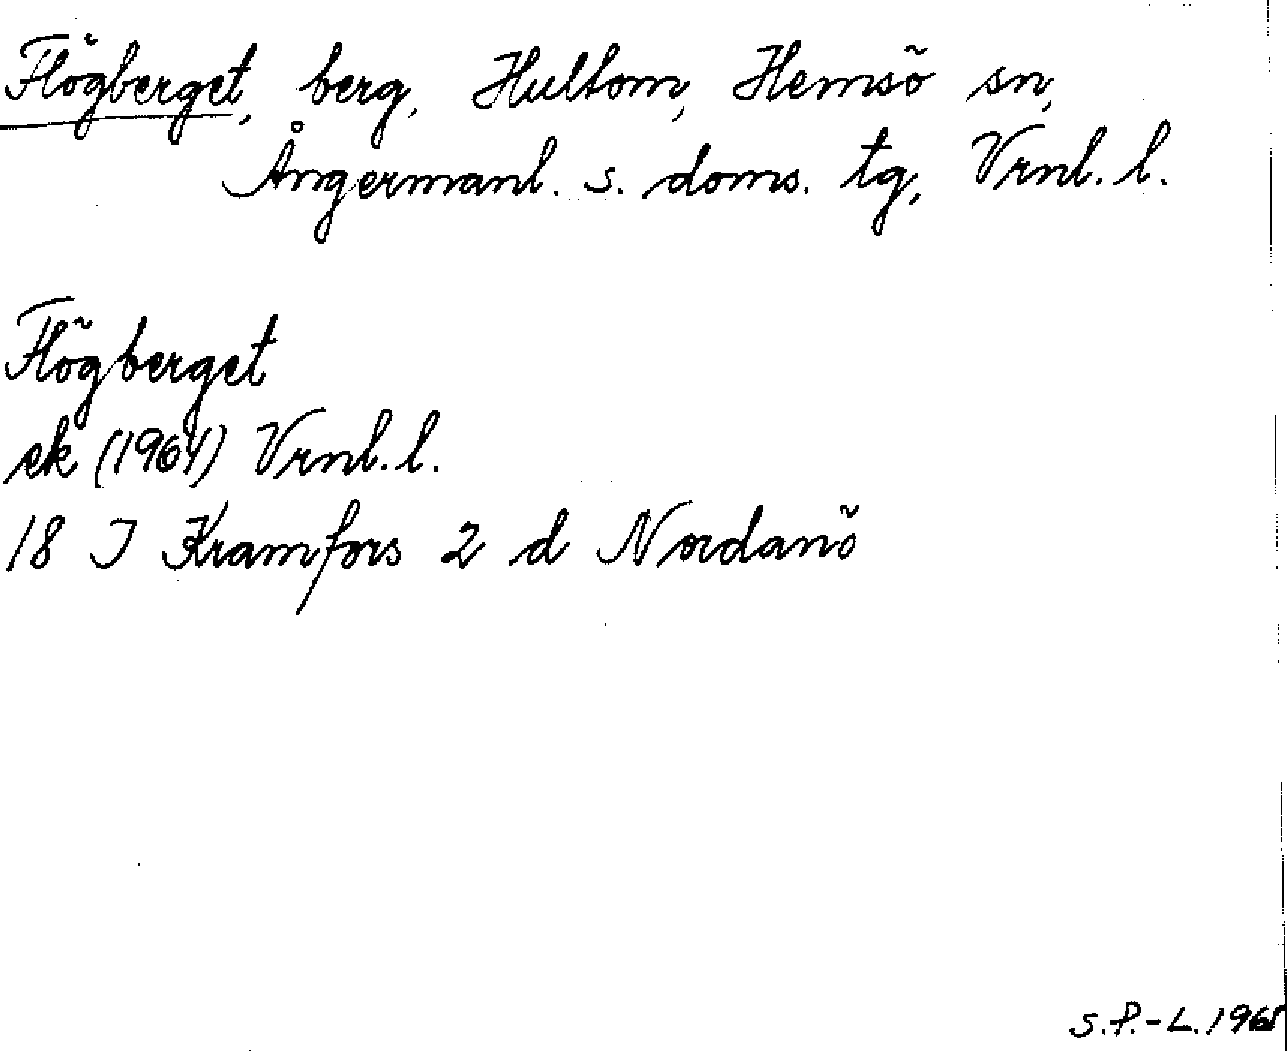 Flögberget, berg, Hultom, Hemsö sn,
Ångermanl. s. doms. tg, Vrnl. l.
Flögberget
ek (1964) Vrnl. l.
18 I Kramfors 2 d Nordanö
S.P.-L. 1965